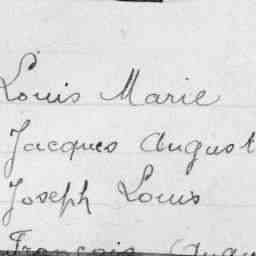 Louis Marie
Jacques August
Joseph Louis
François Augu